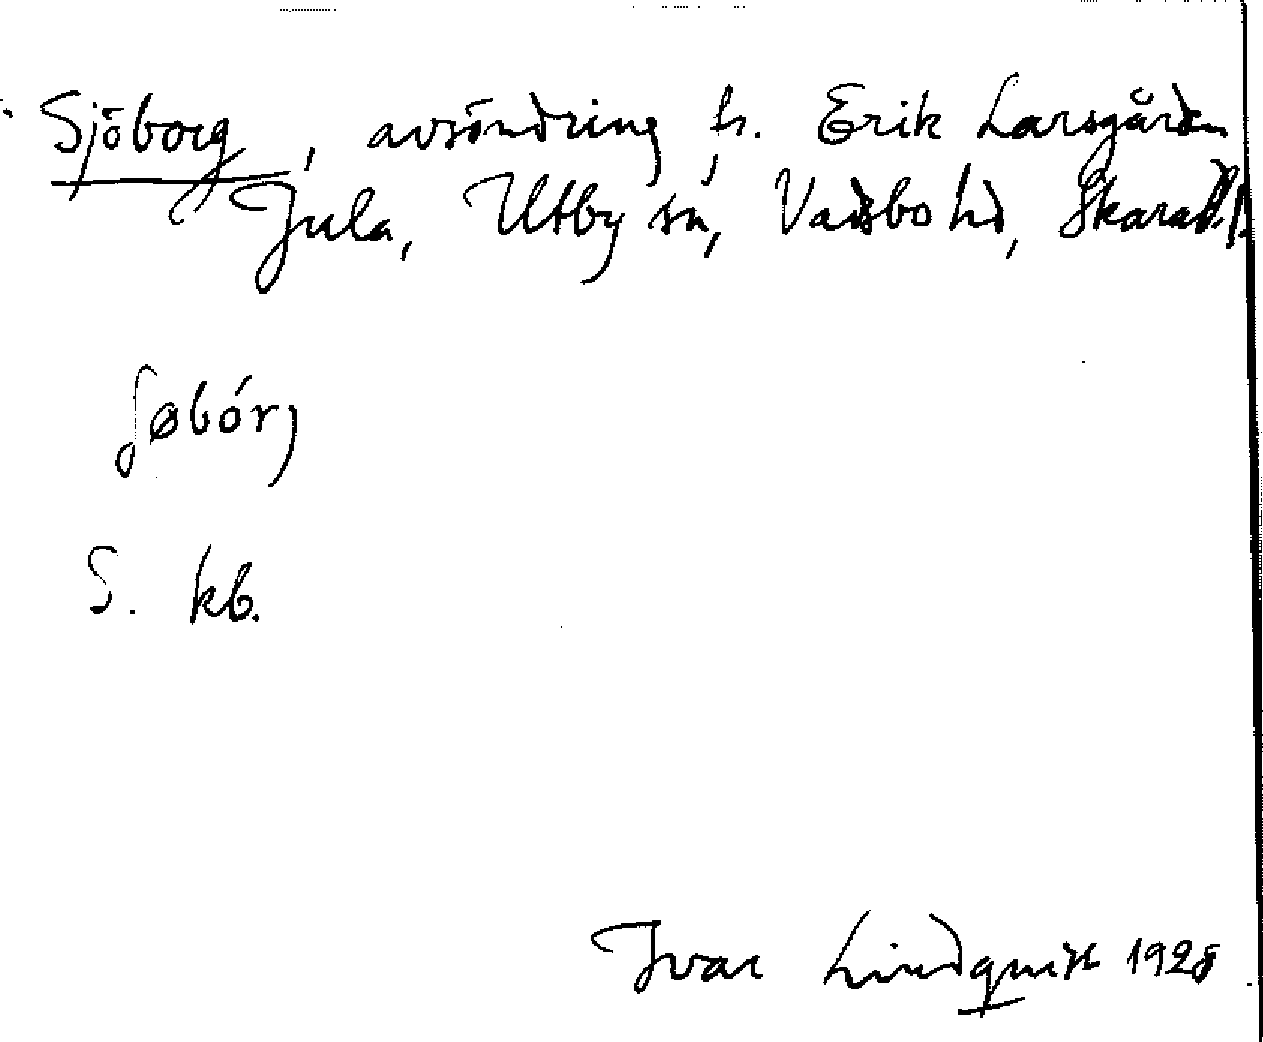 Sjöborg, avsöndring fr. Erik Larsgården
Jula, Utby sn, Vadsbo hd, Skarab. l.
ʃøbórj
S. kb.
Ivar Lindquist 1928